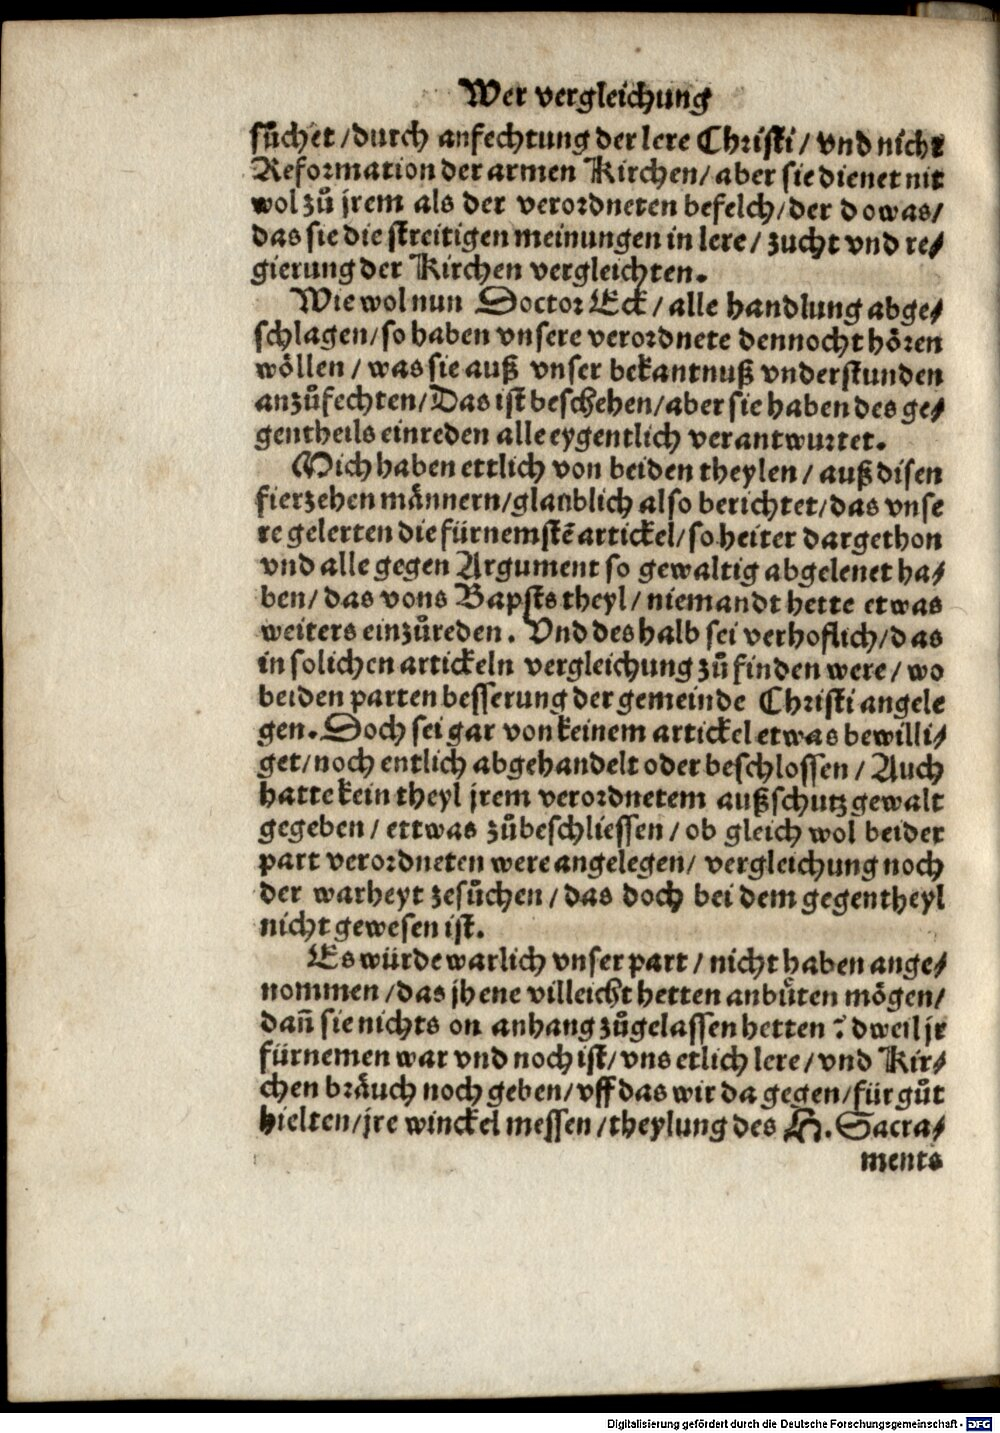 Wer vergleichung
sůchet /durch anfechtung der lere Christi / vnd nicht
Reformation der armen Kirchen/ aber sie dienet nit
wol zů jrem als der verordneten befelch/der do was/
das sie die streitigen meinungen in lere / zucht vnd re⸗
gierung der Kirchen vergleichten.
Wie wol nun Doctor Eck / alle handlung abge⸗
schlagen/so haben vnsere verordnete dennocht hören
wöllen / was sie auß vnser bekantnuß vnderstunden
anzůfechten/Das ist beschehen/aber sie haben des ge⸗
gentheils einreden alle eygentlich verantwurtet.
Mich haben ettlich von beiden theylen / auß disen
fierzehen männern/glaublich also berichtet/das vnse
re gelerten die fürnemstē artickel/so heiter dargethon
vnd alle gegen Argument so gewaltig abgelenet ha⸗
ben/ das vons Bapsts theyl / niemandt hette etwas
weiters einzůreden. Vnd deshalb sei verhoflich/das
in solichen artickeln vergleichung zů finden were / wo
beiden parten besserung der gemeinde Christi angele
gen. Doch sei gar von keinem artickel etwas bewilli⸗
get/noch entlich abgehandelt oder beschlossen / Auch
hatte kein theyl jrem verordnetem außschutz gewalt
gegeben / ettwas zůbeschliessen / ob gleich wol beider
part verordneten were angelegen/ vergleichung noch
der warheyt zesůchen / das doch bei dem gegentheyl
nicht gewesen ist.
Es würde warlich vnser part / nicht haben ange⸗
nommen /das jhene villeicht hetten anbůten mögen/
dañ sie nichts on anhang zůgelassen hetten ? dweil jr
fürnemen war vnd noch ist/vns etlich lere/vnd Kir⸗
chen bräuch noch geben/vff das wir da gegen/für gůt
hielten/jre winckel messen /theylung des H. Sacra⸗
ments
Digitalisierung gefördert durch die Deutsche Forschungsgemeinschaft - DFG